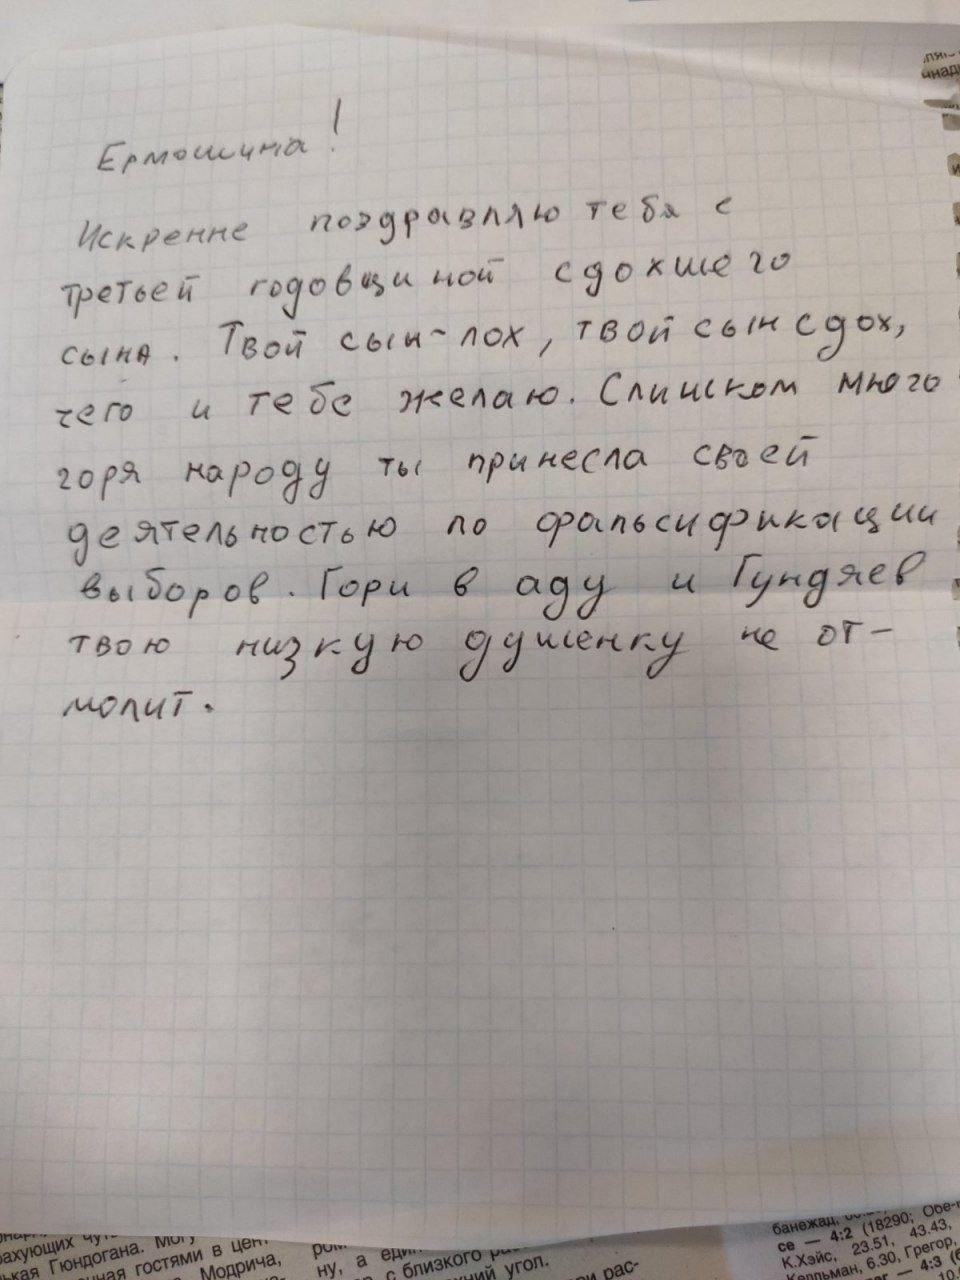 Ермошина!
Искренне поздравляю тебя с
третьей годовщиной сдохшего
сына. Твой сын-лох, твой сын сдох,
чего и тебе желаю. Слишком много
горя народу ты принесла своей
деятельностью по фальсификации
выборов. Гори в аду и Гундяев
твою низкую душенку не от-
молит.
рахующих
ькая Гюндогана.
гостями в цент
Модрича,
ну, а един
с близкого
угол.
рас-
банежад,
се — 4:2 (18290;
К.Хэйс, 23.51, 43.43,
ельман, 6.30, Грегор,
— 4:3